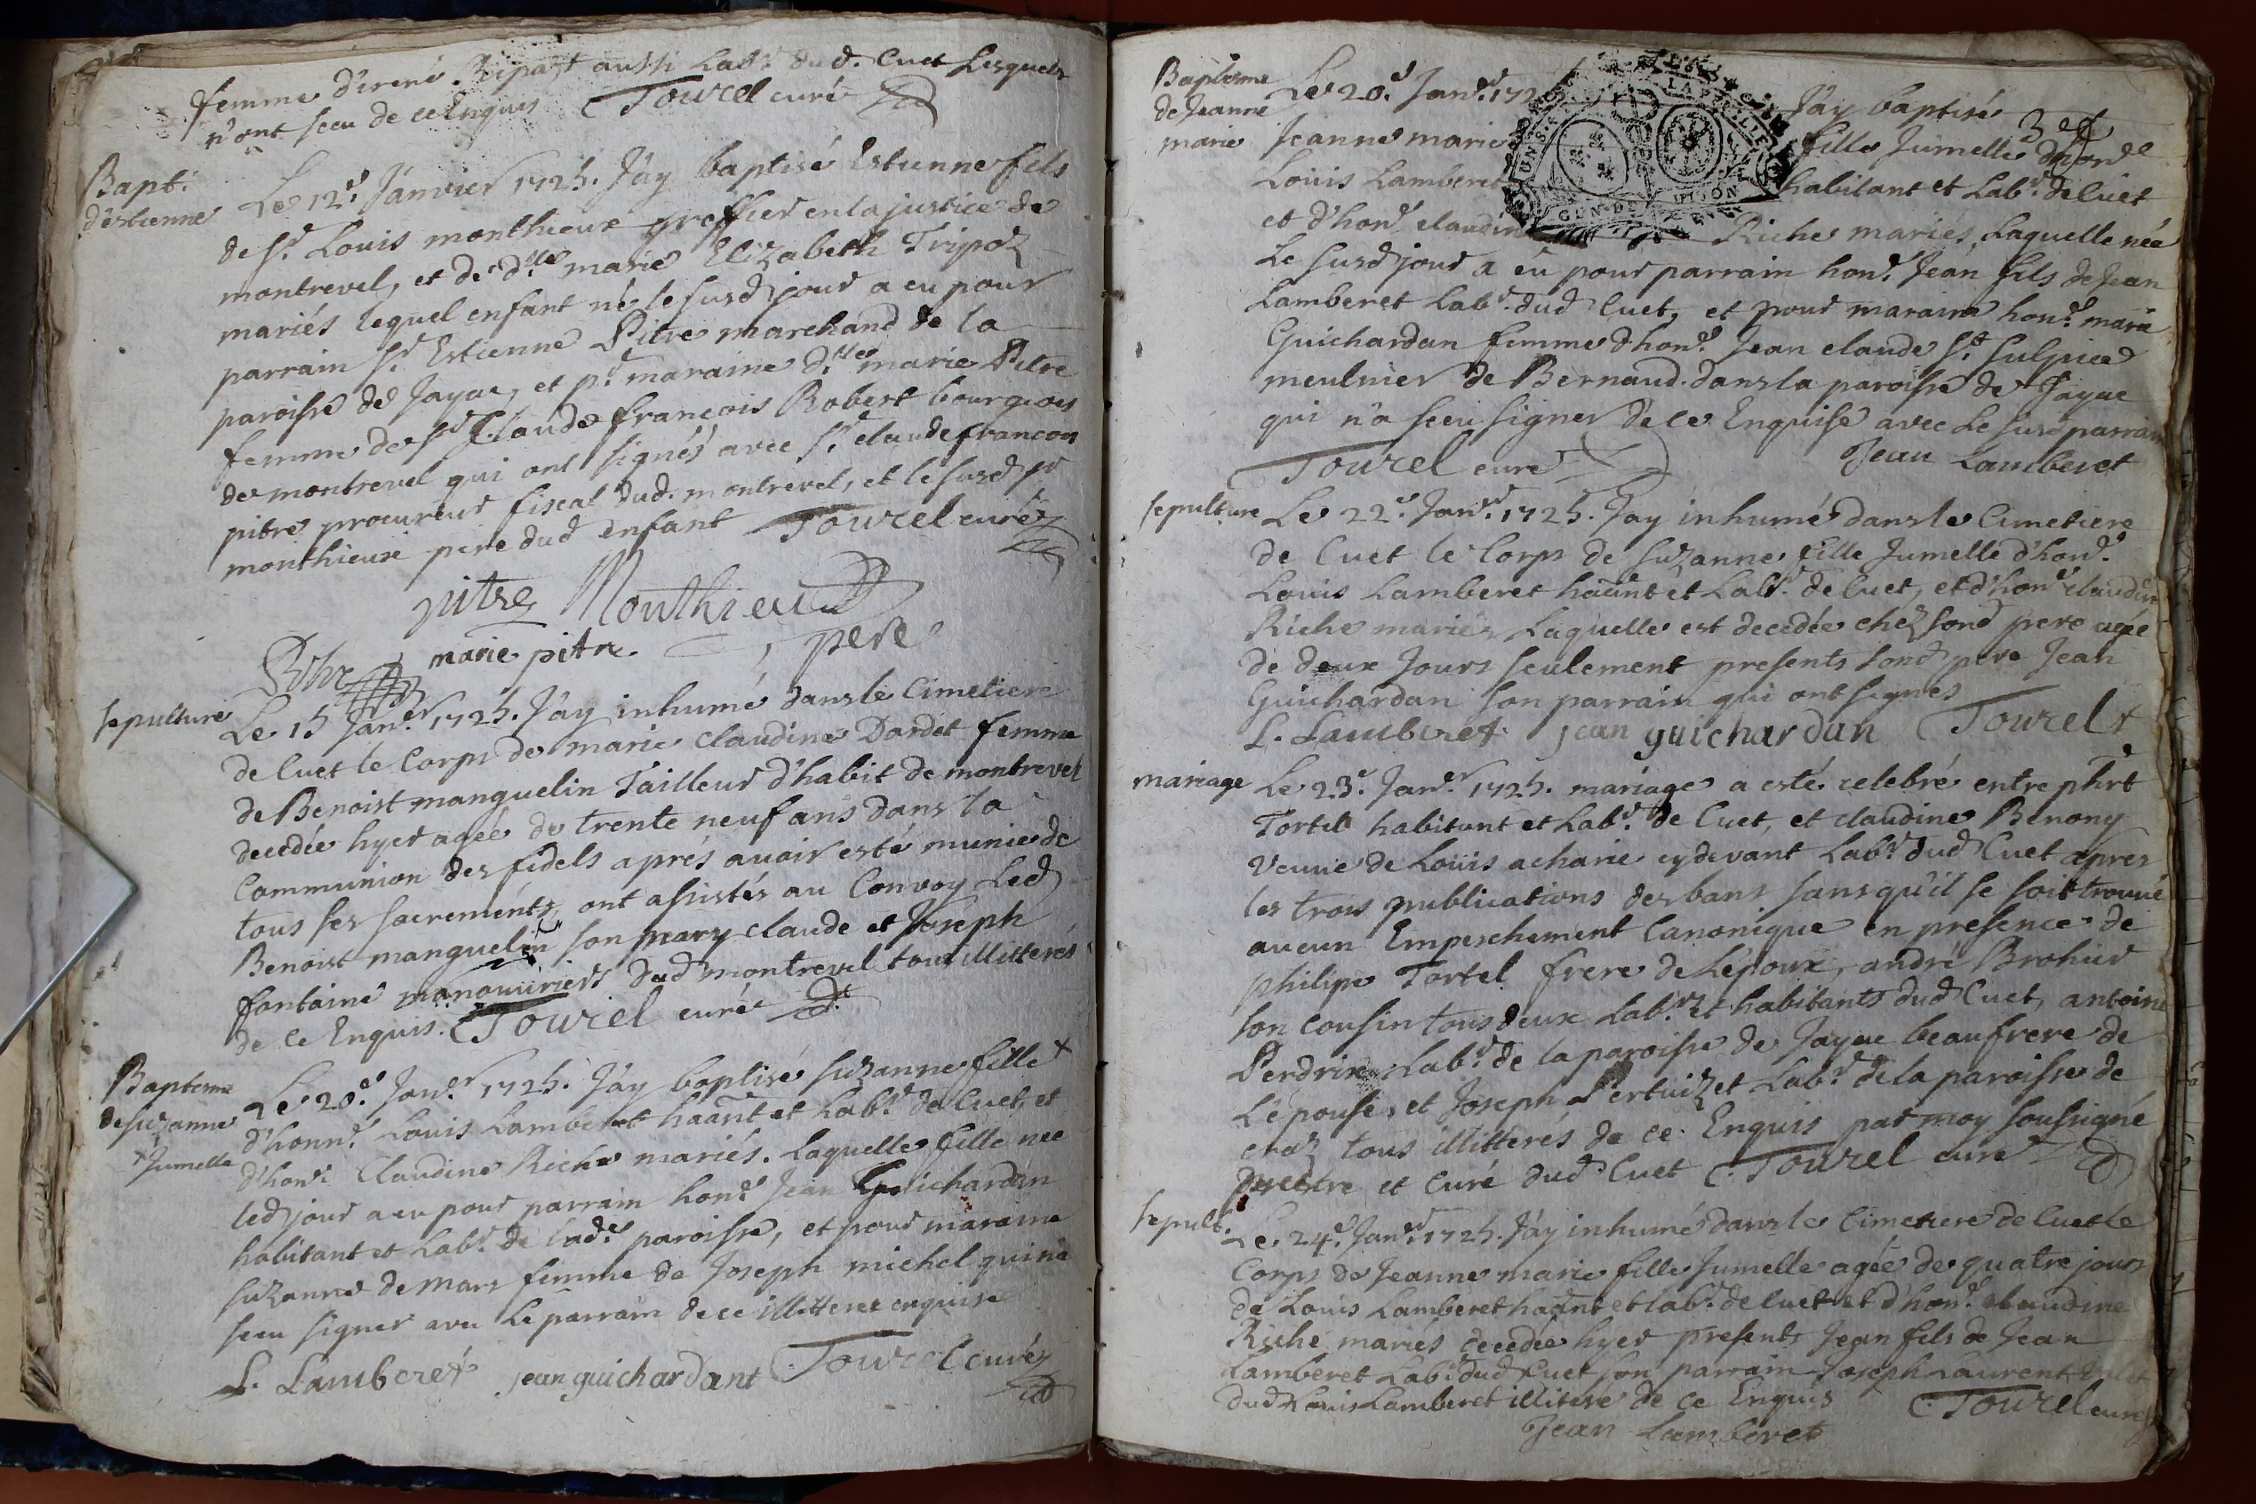 femme d'irené Repast aussi Labr. dud. Cuet Lesquels
n'ont sceu de ce Enquis Tourel curé
Bapt.
d'estienne
Le 12e. Janvier 1725. J'ay baptisé Estienne fils
de Sr. Louis monthieux greffier en la justice de
montrevel, et de dlle marie Elizabeth Tripoz
mariés lequel enfant né le susd jour a eu pour
parrain Sr. Estienne Pitre marchand de la
paroisse de Jayac, et pr maraine dlle marie Pitre
femme de Sr Claude françois Robert bourgeois
de montrevel qui ont signés avec Sr claude francois
pitre procureur fiscal dud. montrevel, et le susd Sr
monthieux pere dud enfant Tourel curé
pitre Monthieux
marie pitre pere
sepulture
Le 15 Janer 1725. J'ay inhumé dans le Cimetiere
de Cuet le Corps de marie Claudine Dardet femme
de Benoist manguelin Tailleur d'habit de montrevel
decedée hyer agée de trente neuf ans dans la
Communion des fidels aprés avoir esté munie de
tous ses sacrements, ont assistés au Convoy Led
Benoist manguelin son mary claude et Joseph
fontaine manouvriers dud montrevel tous illitterés
de ce Enquis. Tourel curé
Baptesme
de suzanne
x Jumelle
Le 20e. Janer 1725. J'ay baptisé suzanne fille x
d'honr. Louis Lamberet haant et Labr. de Cuet, et
d'honr. Claudine Riche mariés. Laquelle fille née
led jour a eu pour parrain honr Jean Guichardan
habitant et Labr. de lade. paroisse, et pour maraine
suzanne de mars femme de Joseph michel qui n'a
sceu signer avec Le parrain de ce illitteree enquise
L. Lamberet jean guichardant Tourel curé
Baptesme
de Jeanne
marie
Le 20e. Janr. 172 J'ay baptisé
Jeanne marie fille Jumelle d'honr
Louis Lamberet habitant et Labr. de Cuet
et d'honr claudine Riche mariés, Laquelle née
Le susd jour a eu pour parrain honr. Jean fils de Jean
Lamberet Labr. dud Cuet, et pour maraine honr. marie
Guichardan femme d'honr. Jean claude St sulpice
meulnier de Bernaud. dans la paroisse de Jayac
qui n'a sceu signer de ce Enquise avec Le susd parrain
Tourel curé Jean Lamberet
sepulture
Le 22e. Janr. 1725. J'ay inhumé dans le Cimetiere
de Cuet le Corps de suzanne fille Jumelle d'honr.
Louis Lamberet haant et Labr. de Cuet, et d'honr claudine
Riche mariés Laquelle est decedée chez sond pere agée
de deux Jours seulement presents sond pere Jean
Guichardan son parrain qui ont signés
L. Lamberet jean guichardan Tourel
mariage
Le 23e. Janr. 1725. mariage a esté celebré entre phrt
Tortel habitant et Labr. de Cuet, et claudine Benony
veuve de Louis acharie cydevant Labr. dud Cuet apres
les trois publications des bans sans qu'il se soit trouvé
aucun Empeschement Canonique en presence de
philipe Tortel frere de L'epoux, andré Brohier
son cousin tous deux Labrs. et habitants dud Cuet, antoine
Perdrix Labr. de la paroisse de Jayac beaufrere de
L'epouse, et Joseph Pertuizet Labr. de la paroisse de
craz tous illitterés de ce Enquis par moy soussigné
prestre et Curé dud Cuet Tourel curé
sepult.
Le 24e. Janr. 1725. J'ay inhumé dans le Cimetiere de Cuet le
Corps de Jeanne marie fille Jumelle agée de quatre jours
de Louis Lamberet haant et labr. de Cuet et d'honr. claudine
Riche mariés decedée hyer presents Jean fils de Jean
Lamberet Labr dud Cuet son parrain Joseph Laurent
dud Louis Lamberet illitere de ce Enquis Tourel curé
Jean Lamberet